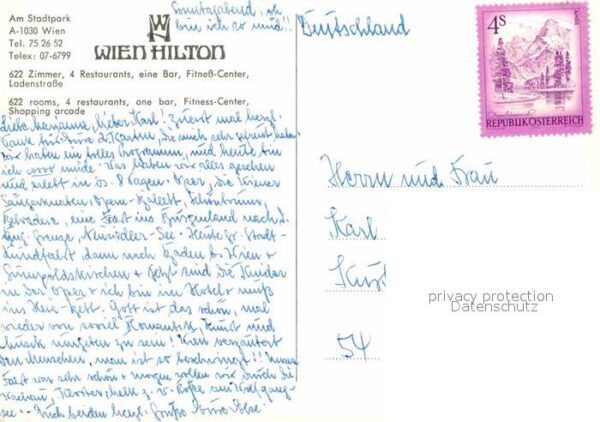 Am Stadtpark
A-1030 Wien
Tel. 75 26 52
Telex: 07-6799
WIEN HILTON
622 Zimmer, 4 Restaurants, eine Bar, Fitneß-Center,
Ladenstraße
622 rooms, 4 restaurants, one bar, Fitness-Center,
Shopping arcade
Sonntagabend, oh
bin ich so müd!!
Liebe Marianne, lieber Karl! Zuerst mal herzl.
Dank für Eure 2 Karten, die mich sehr gefreut haben.
Wir haben ein tolles Programm, und heute bin
ich müde. Was haben wir alles gesehen
und erlebt in ds. 8 Tagen. Oper, die Wiener
Sängerknaben Opern-Ballett, Schönbrunn,
Belvedere, eine Fahrt ins Burgenland nach d.
Ung. Grenze, Neusiedler-See. Heute gr. Stadt-
rundfahrt, dann nach Baden b. Wien +
Gumpoldskirchen + jetzt sind die Kinder
in der Oper + ich bin im Hotel + muß
ins Bett. Gott ist das schön, mal
wieder von soviel Romantik, Kunst und
Musik umgeben zu sein! Wien verzaubert
den Menschen, man ist so beschwingt!! Unsere
Fahrt war sehr schön + morgen wollen wir durch die
Wachau, Melk z. W. am Wolfgang-
see. Euch beiden herzl. Grüße Eure
Deutschland
4 S
REPUBLIK ÖSTERREICH
Herrn und Frau
Karl
54
privacy protection
Datenschutz